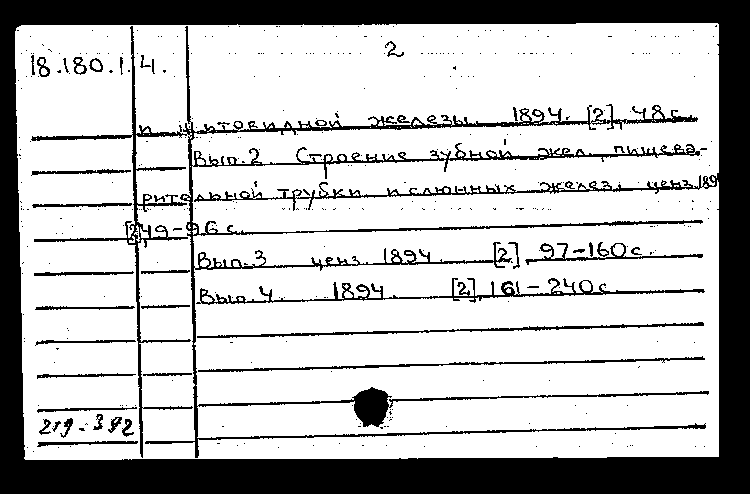 2
18.180.1.4.
и щитовидной железы. 1894. [2], 48 с.
Вып. 2 Строение зубной жел., пищева-
рительной трубки и слюнных желез. ценз. 1894
[2], 49-96 с.
Вып. 3 ценз. 1894 [2], 97-160 с.
Вып. 4. 1894. [2], 161-240 с.
219-392